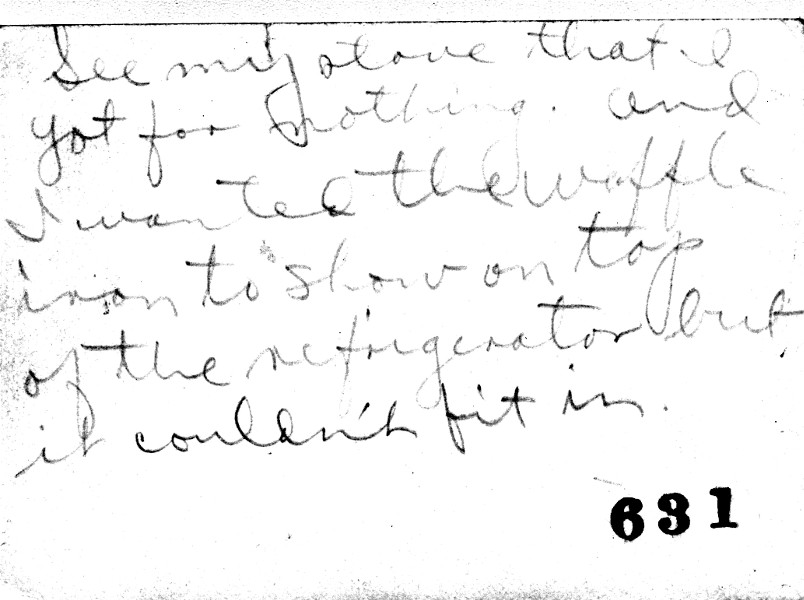 See my stove that I
got for nothing. and
I wanted the waffle
iron to show on top
of the refrigerator but
it couldn't fit in.
631